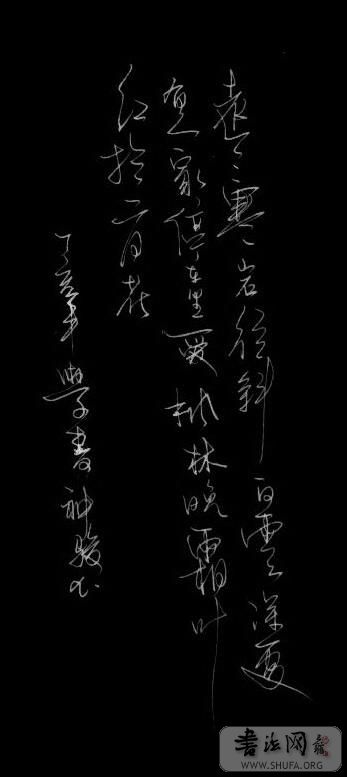 遠上寒山石径斜 白雲深處
有人家停車坐愛枫林晚霜叶
红於二月花
丁亥年學書神駿书
書法网
WWW.SHUFA.ORG